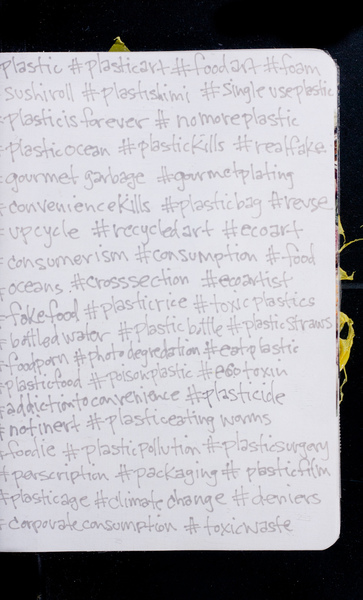 plastic #plasticart #foodart #foam
sushiroll #plastishimi #Singleuseplastic
plasticisforever #nomoreplastic
plasticocean #plastickills #realfake
gourmet garbage #gourmetplating
conveniencekills #plasticbag #reuse
upcycle #recycledart #ecoart
consumerism #consumption #food
oceans #crosssection #ecoartist
fakefood #plasticrice #toxicplastics
bottledwater #plasticbottle #plasticstraws
foodporn #photodegredation #eatplastic
plasticfood #poisonplastic #ecotoxin
addictiontoconvenience #plasticide
#notinert #plasticeating worms
foodie #plasticpollution #plasticsurgery
#perscription #packaging # plasticfilm
#plasticage #climate change #deniers
corporateconsumption #toxicwaste